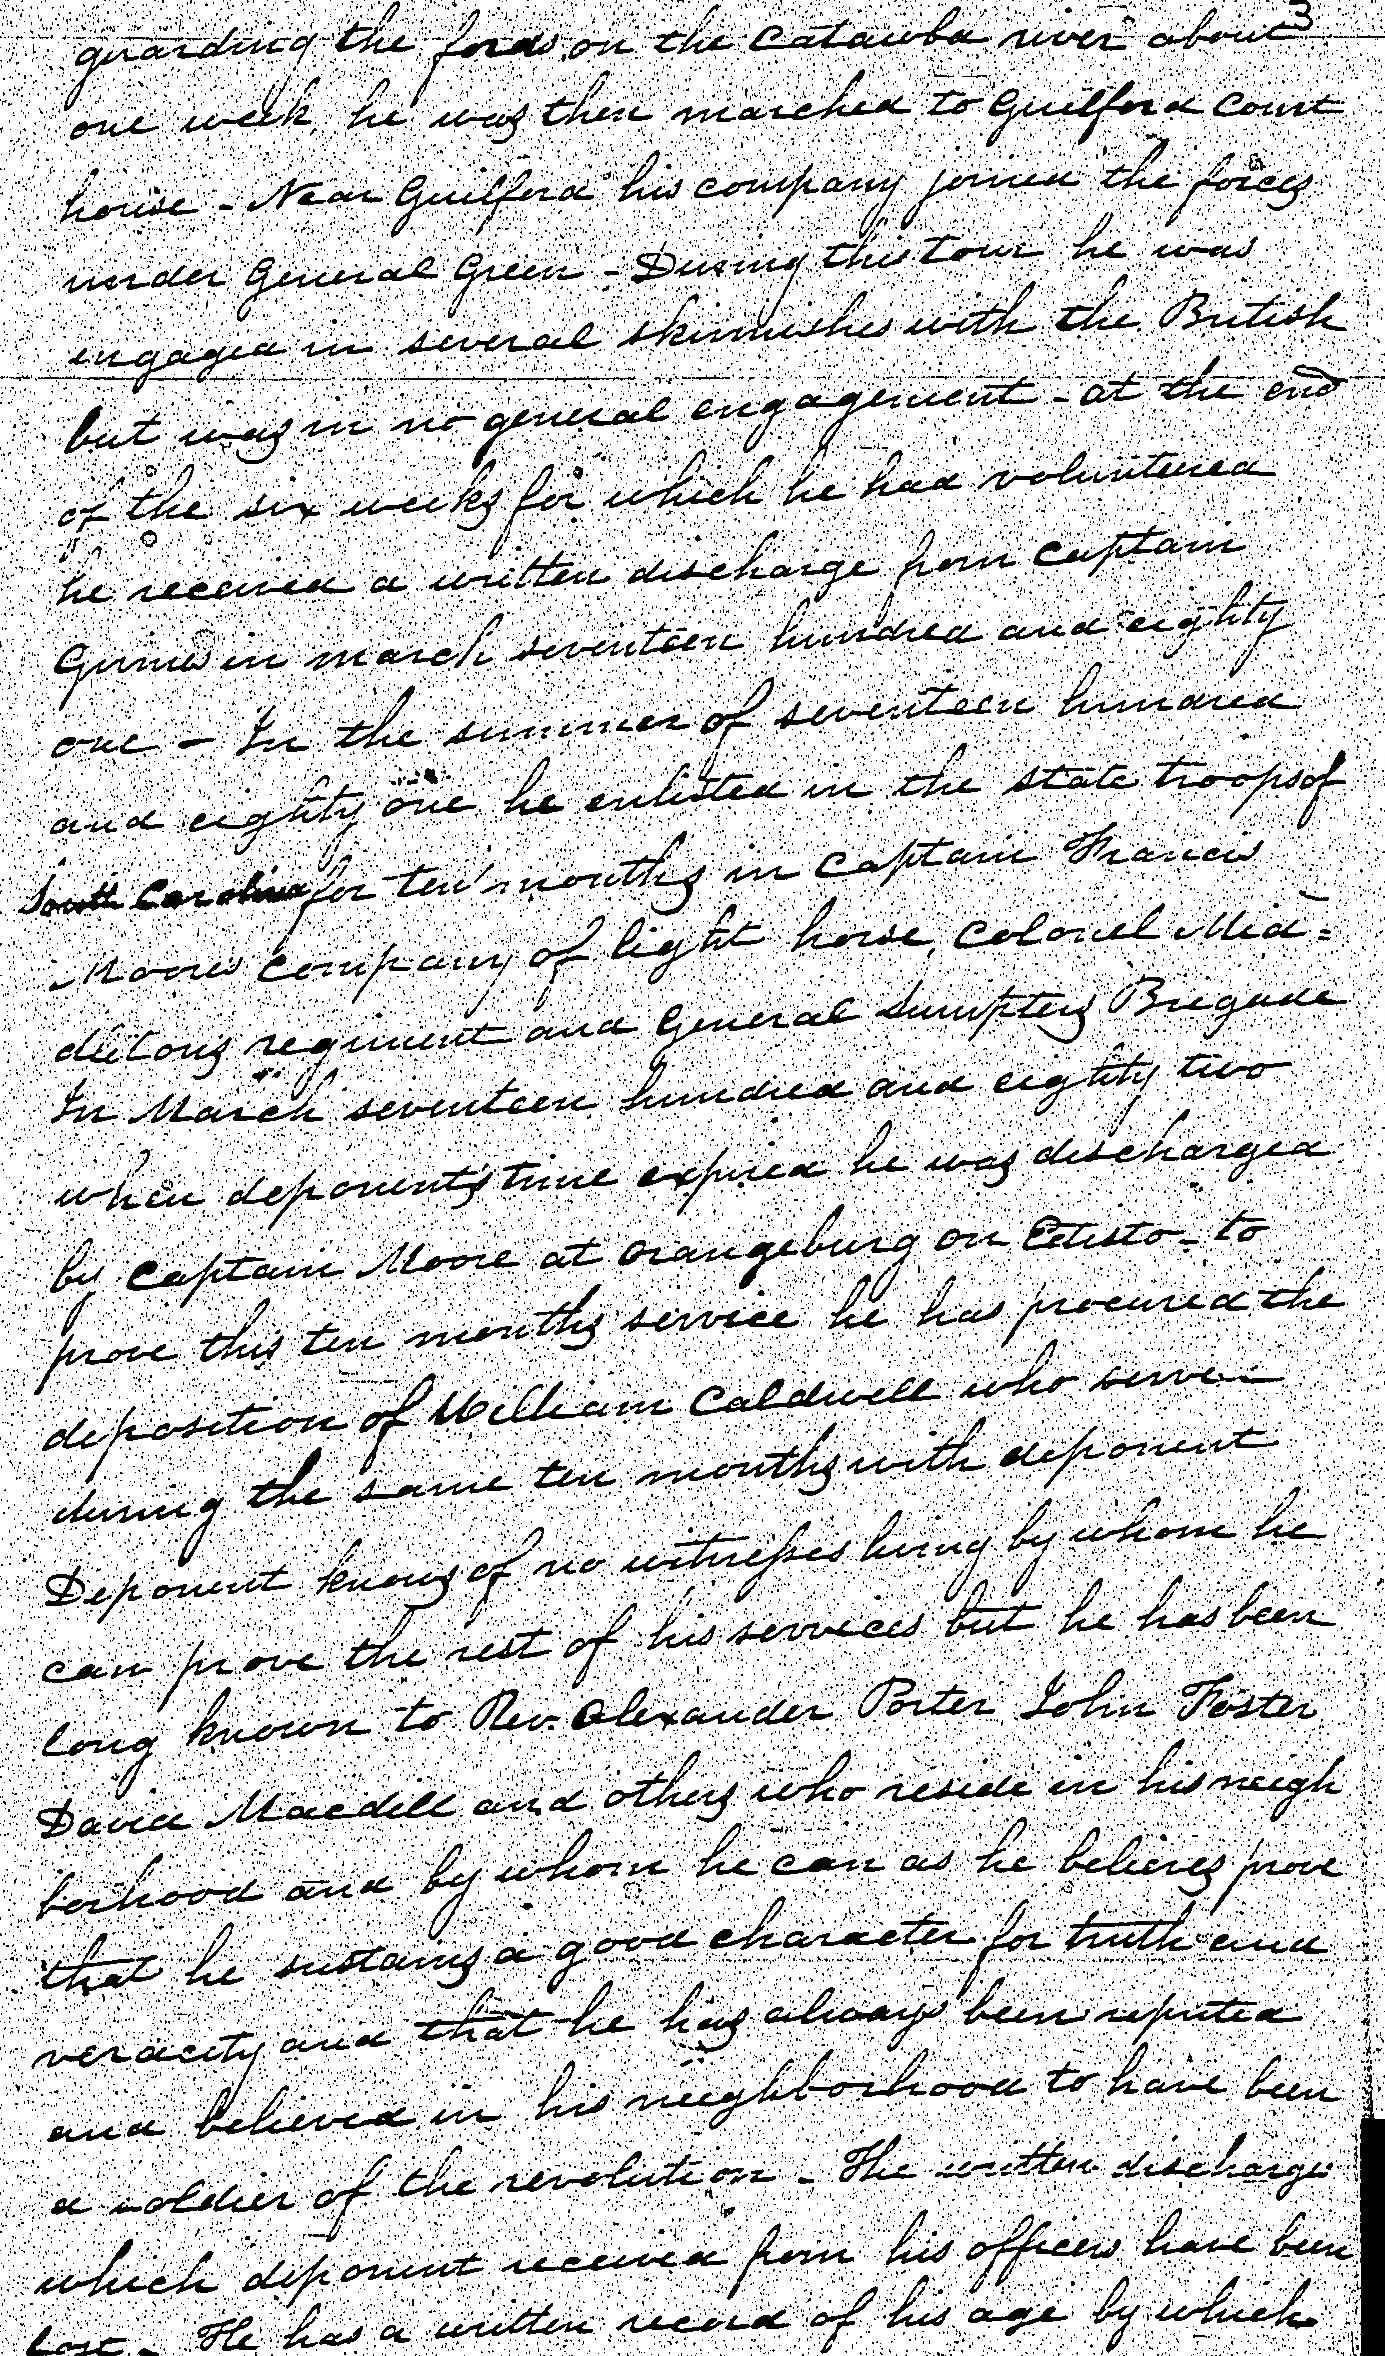 3
guarding the fords on the Catawba river about
one week, he was then marched to Guilford Court
house - Near Guilford his company joined the forces
under General Green - During this tour he was
engaged in several skirmishes with the British
but was in no general engagement - at the end
of the six weeks for which he had volunteered
he received a written discharge from Captain
in march seventeen hundred and eighty
one - In the summer of seventeen hundred
and eighty one he enlisted in the state troops of
South Carolina for ten months in Captain Francis
Moores company of light horse, Colonel Mid=
dletons regiment and General Sumpters Brigade
In March seventeen hundred and eighty two
when deponents time expired he was discharged
by Captain Moore at Orangeburg on Edisto - to
prove this ten months service he has procured the
deposition of William Caldwell who served
during the same ten months with deponent
Deponent knows of no witnesses living by whom he
can prove the rest of his services but he has been
long known to Rev. Alexander Porter John Foster
David Macdill and others who reside in his neigh
borhood and by whom he can as he believes prove
that he sustains a good character for truth and
veracity and that he has always been reputed
and believed in his neighborhood to have been
a soldier of the revolution - The written discharges
which deponent received from his officers have been
lost - He has a written record of his age by which